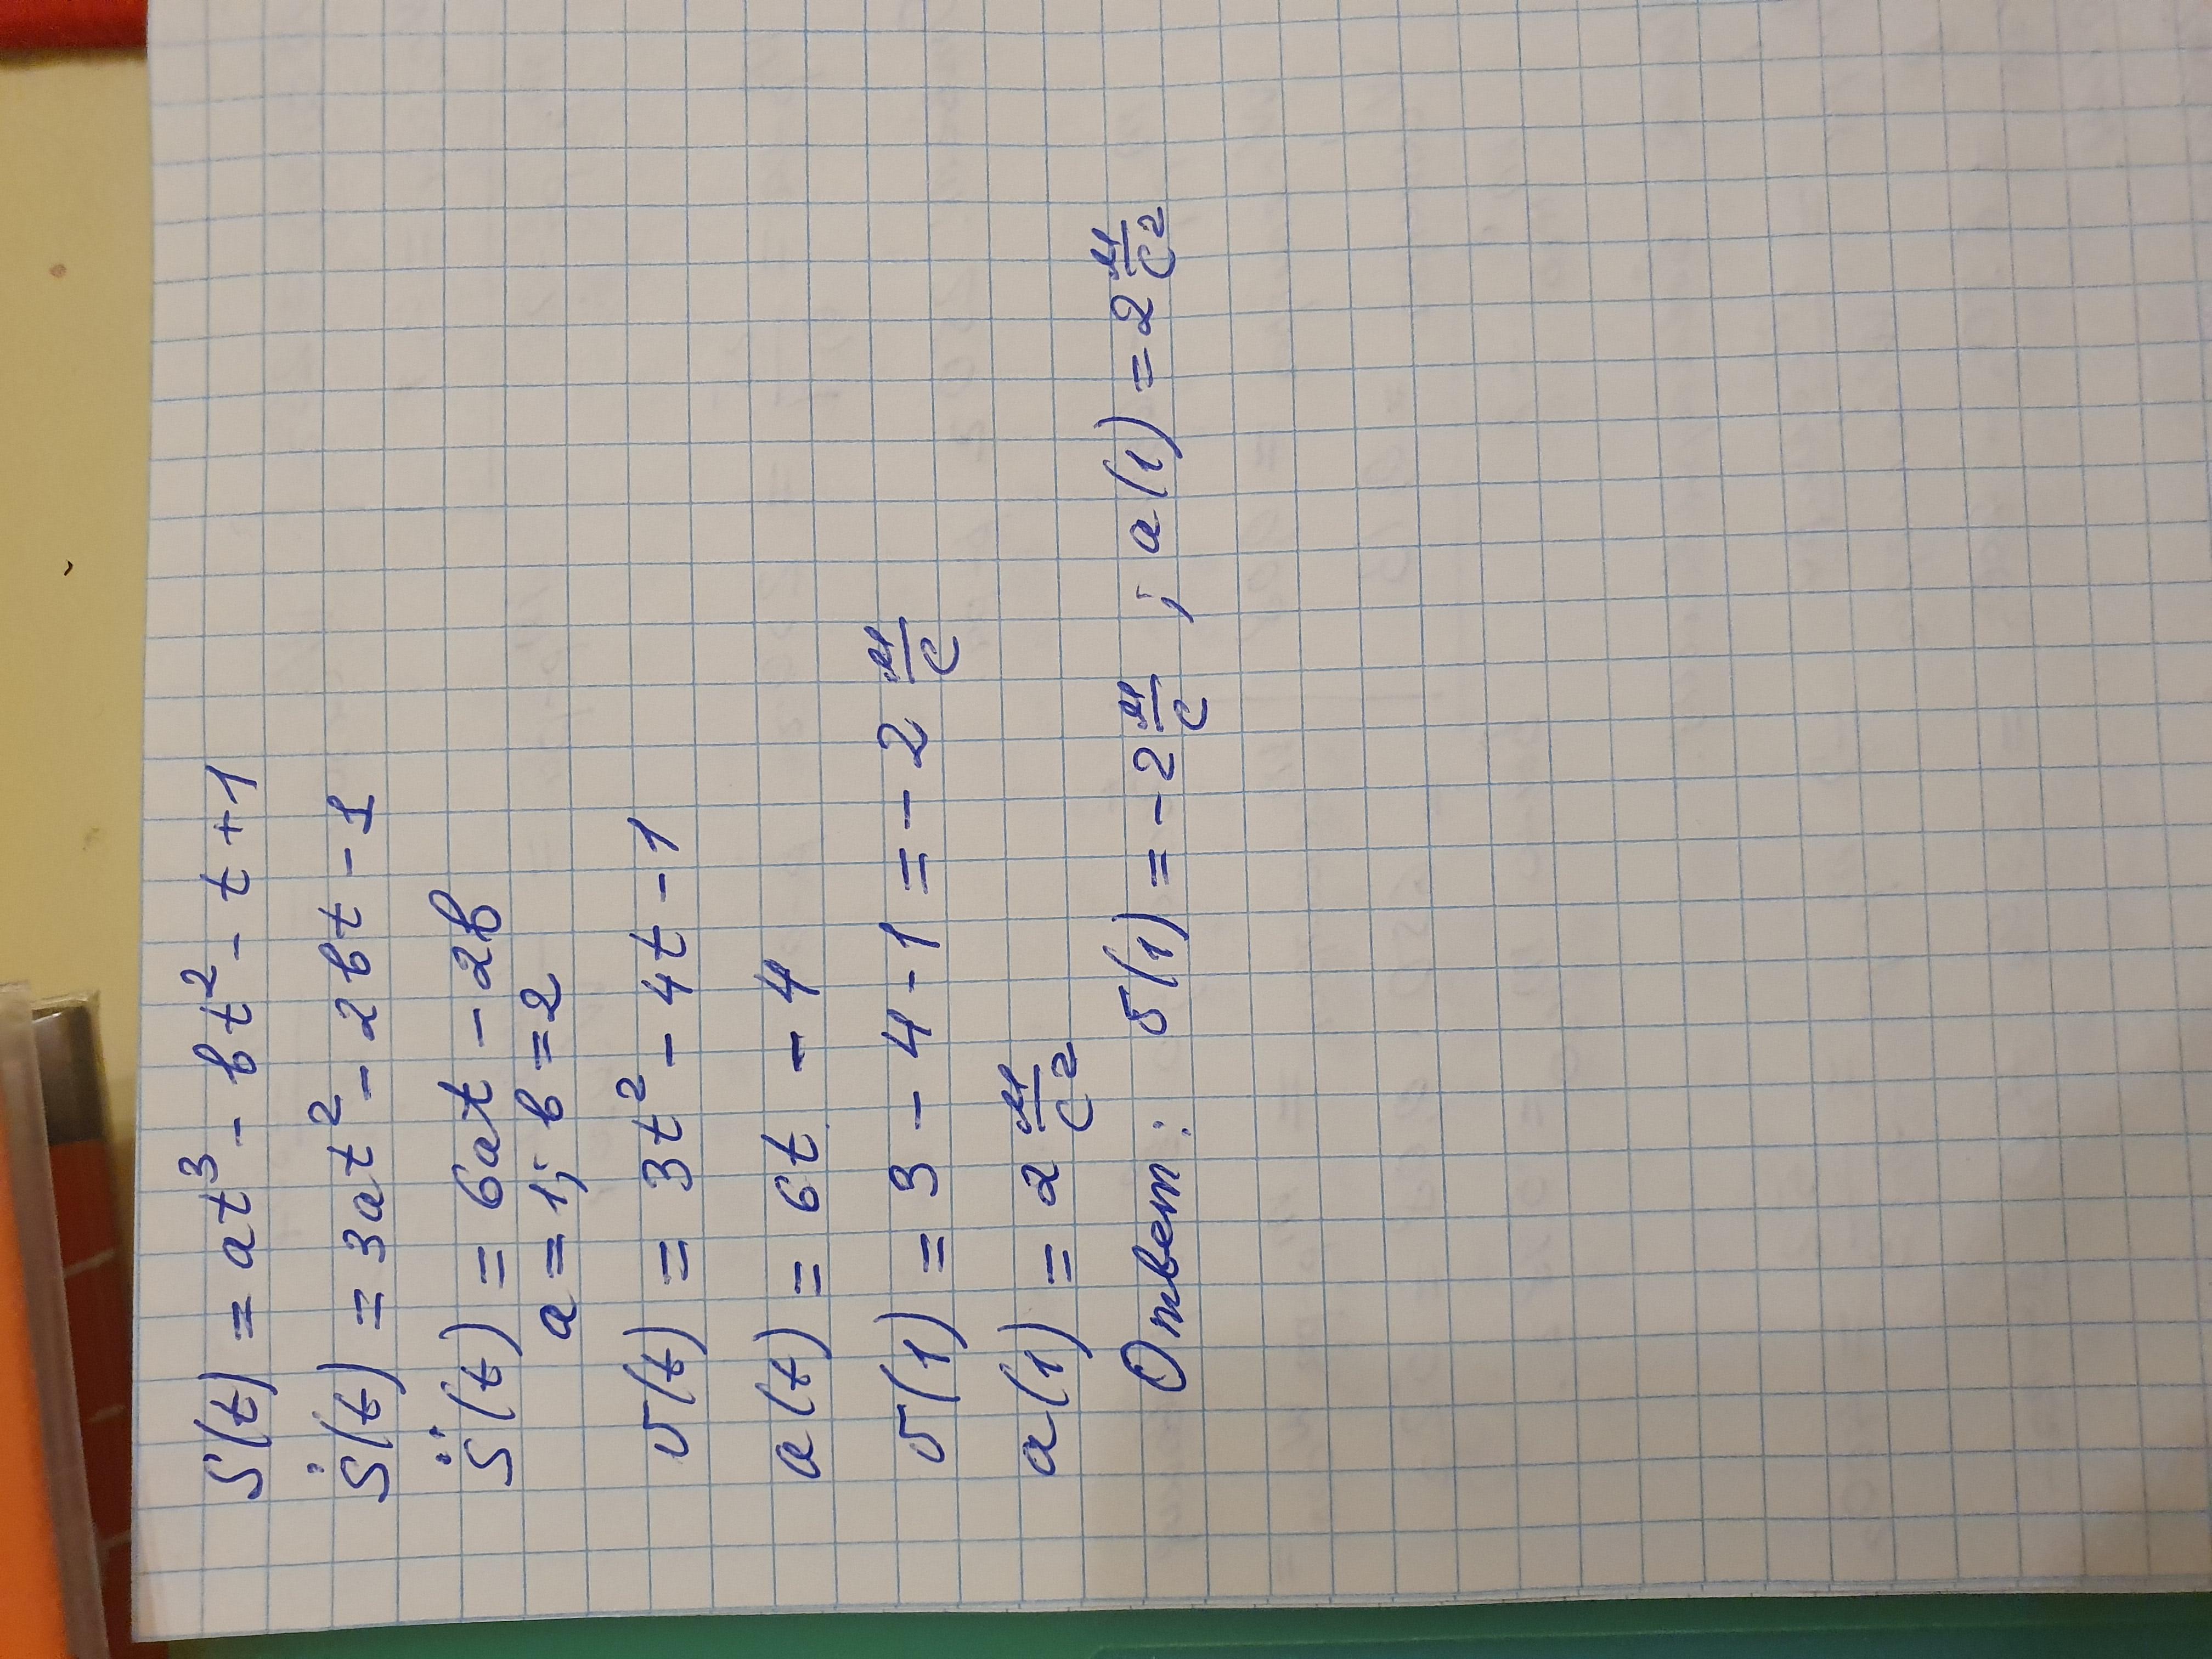 S(t) = at³ - вt² - t + 1
Ṡ(t) = 3at² - 2вt - 1
S̈(t) = 6at - 2в
a = 1; в = 2
υ(t) = 3t² - 4t - 1
a(t) = 6t - 4
υ(1) = 3 - 4 - 1 = - 2 м/с
a(1) = 2 м/с²
Ответ: υ(1) = - 2 м/с ; a(1) = 2 м/с²